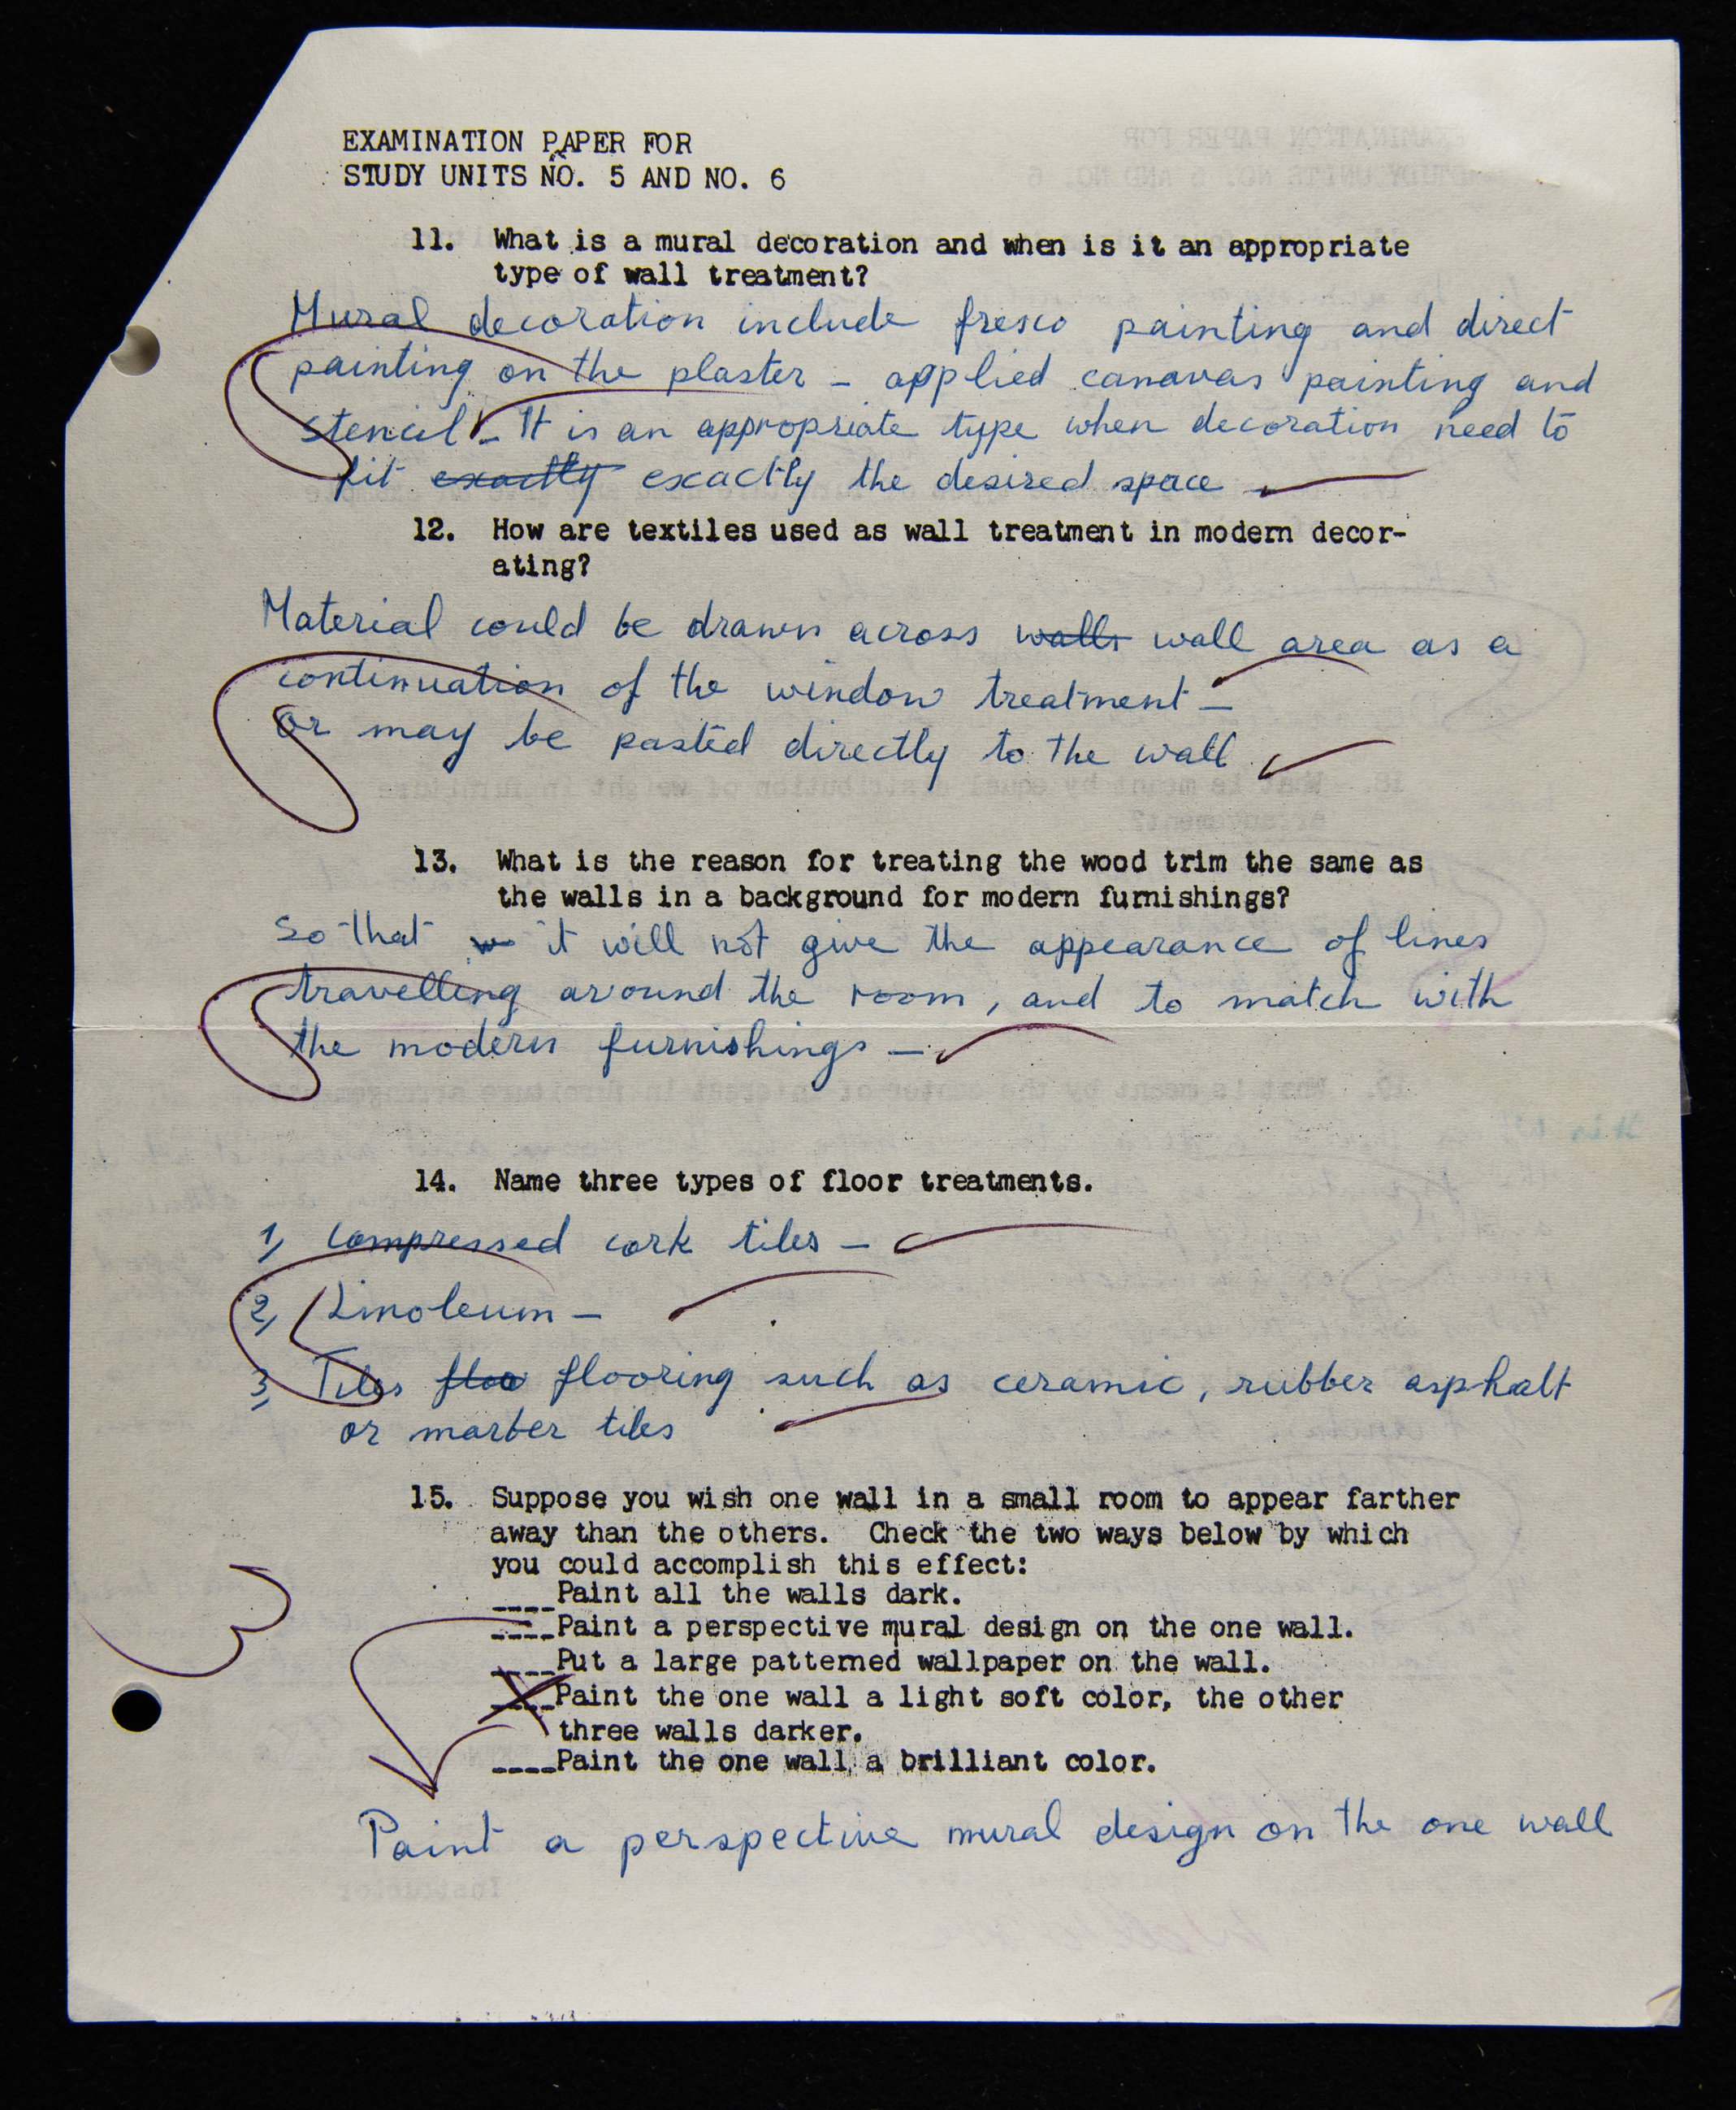 EXAMINATION PAPER FOR
STUDY UNITS NO. 5 AND NO. 6
11. What is a mural decoration and when is it an appropriate
type of wall treatment?
Mural decoration include fresco painting and direct
painting on the plaster - applied canavas painting and
stencil - It is an appropriate type when decoration need to
fit exactly excactly the desired space
12. How are textiles used as wall treatment in modern decor-
ating?
Material could be drawn across walls wall area as a
continuation of the window treatment -
or may be pasted directly to the wall
13. What is the reason for treating the wood trim the same as
the walls in a background for modern furnishings?
So that it will not give the appearance of lines
travelling around the room, and to match with
the modern furnishings -
14. Name three types of floor treatments.
1, Compressed cork tiles -
2, Linoleum -
3, Tiles floo flooring such as ceramic, rubber asphalt
or marber tiles
15. Suppose you wish one wall in a small room to appear farther
away than the others. Check the two ways below by which
you could accomplish this effect:
____Paint all the walls dark.
____Paint a perspective mural design on the one wall.
____Put a large patterned wallpaper on the wall.
____Paint the one wall a light soft color, the other
three walls darker.
____Paint the one wall a brilliant color.
Paint a perspective mural design on the one wall